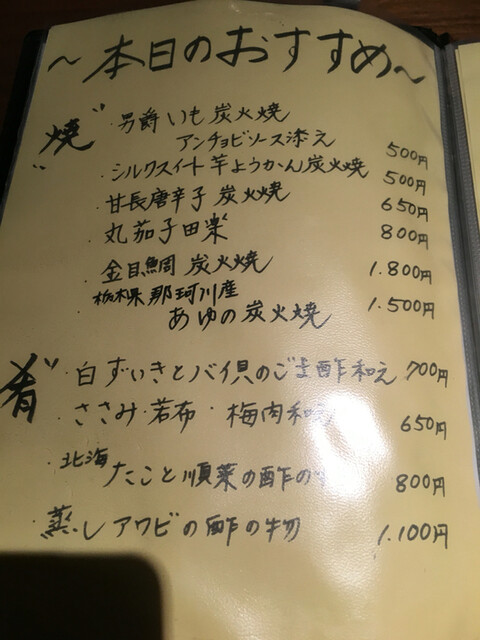 ～本日のおすすめ～
"焼"
男爵いも炭火焼
アンチョビソース添え 500円
シルクスイート芋ようかん炭火焼 500円
甘長唐辛子炭火焼 650円
丸茄子田楽 800円
金目鯛炭火焼 1.800円
栃木県那珂川産
あゆの炭火焼 1.500円
"肴"
白ずいきとバイ貝のごま酢和え 700円
ささみ・若布・梅肉和 650円
北海たこと順菜の酢の 800円
蒸しアワビの酢の物 1.100円